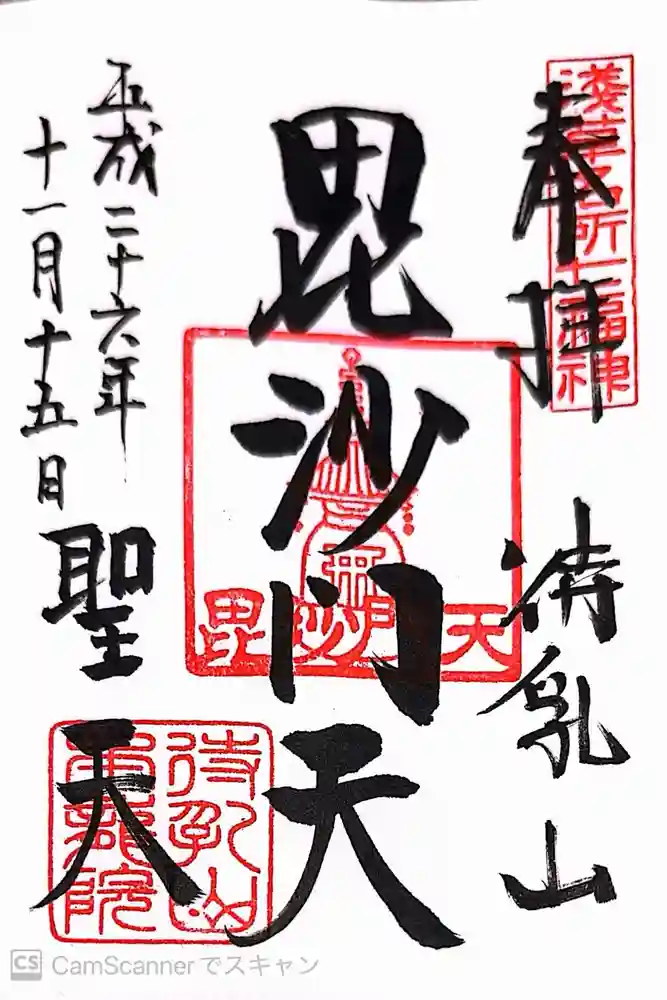 奉拝
待乳山
浅草名所七福神
毘沙门天
毘沙門天
平成二十六年
十一月十五日
聖天
待乳山
本龍院
CS CamScannerでスキャン